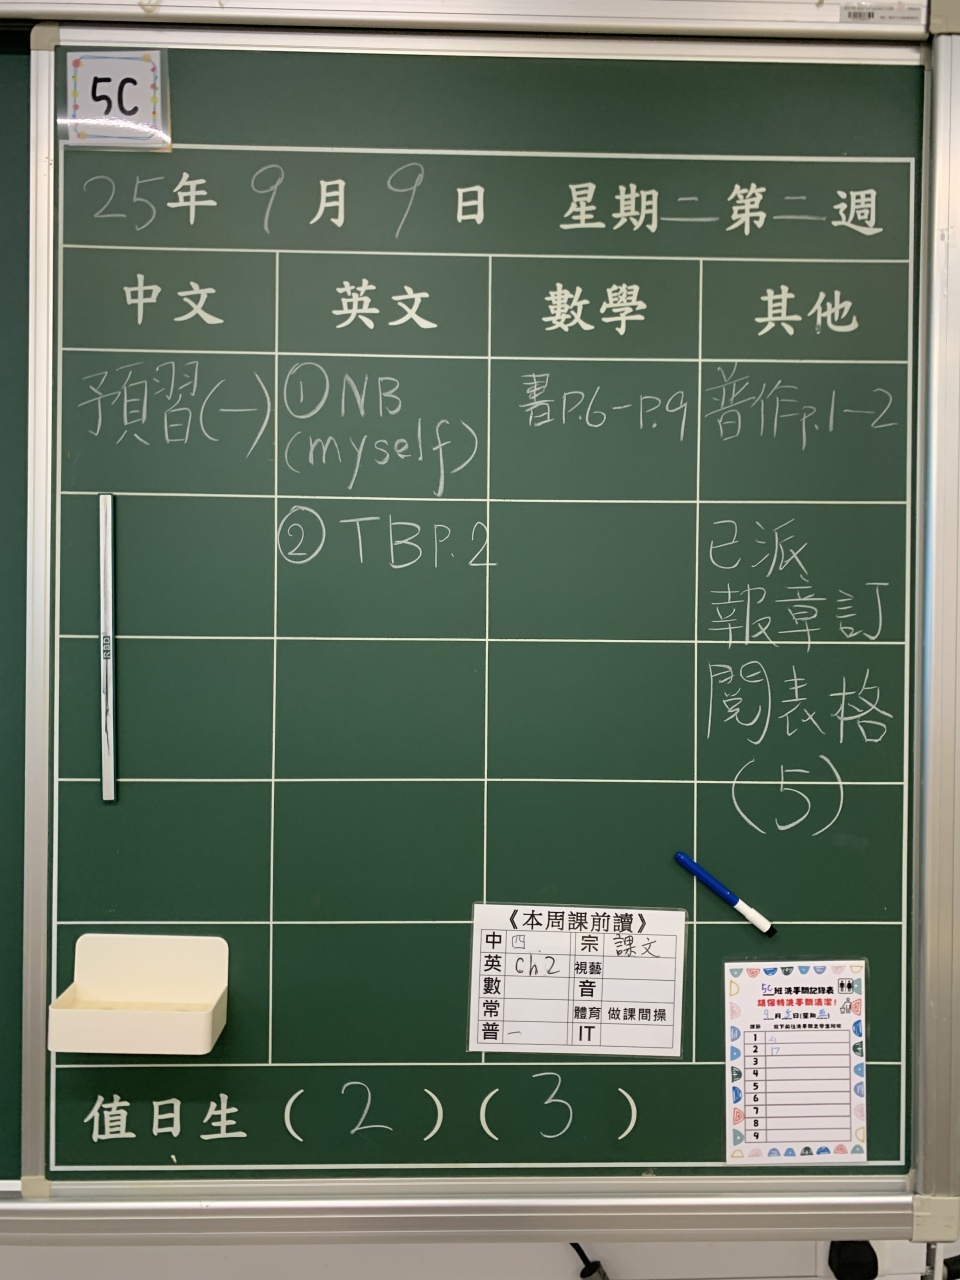 5C
25年 9月 9日 星期二 第二週
中文 英文 數學 其他
預習(一) ①NB (myself) 書P.6-P.9 普作p.1-2
② TBP.2 已派
報章訂
閱表格
(5)
《本周課前讀》
中 四. 宗 課文
英 Ch2 視藝
數 音
常 體育 做課間操
普 一 IT
5C班洗手間記錄表
請保持洗手間清潔!
9月 日(星期 )
1
2 17
3
4
5
6
7
8
9
值日生 (2)(3)